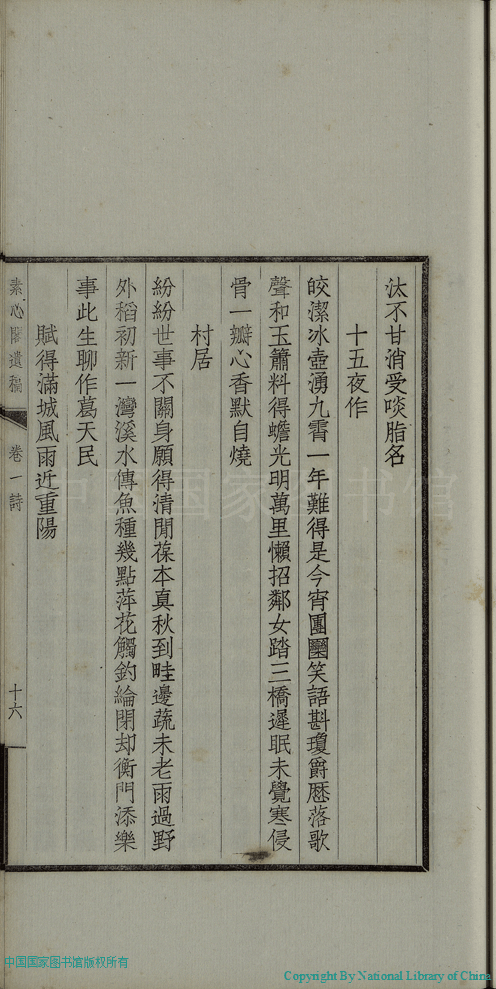 汰不甘消受啖脂名
十五夜作
皎潔冰壺湧九霄一年難得是今宵團圞笑語斟瓊爵歷落歌
聲和玉簫料得蟾光明萬里懶招鄰女踏三橋遲眠未覺寒侵
骨一瓣心香默自燒
村居
紛紛世事不關身願得清閒葆本真秋到畦邊蔬未老雨過野
外稻初新一灣溪水傳魚種幾點萍花觸釣綸閉却衡門添樂
事此生聊作葛天民
賦得滿城風雨近重陽
素心閣遺稿
卷一詩
十六
中国国家图书馆
中国国家图书馆版权所有
Copyright By National Library of China